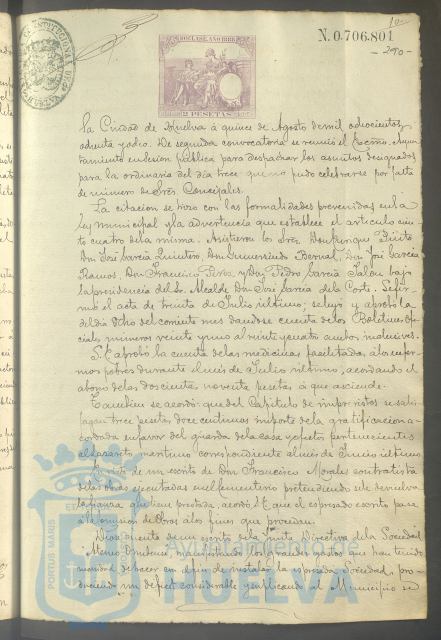 10
N. 0.706.801
- 290 -
10ª CLASE. AÑO 1888
2 PESETAS
En la Ciudad de Huelva á quince de Agosto de mil ochocientos
ochenta y ocho. De segunda convocatoria se reunió el Excmo. Ayun
tamiento en sesion pública para despachar los asuntos designados
para la ordinaria del dia trece que no pudo celebrarse por falta
de número de Sres. Concejales.
La citacion se hizo con las formalidades prevenidas en la
ley municipal y la advertencia que establece el articulo cien
to cuatro de la misma. Asistieron los Sres. Don
Don José García Quintero, Don Gumersindo Bernal, Don José García
Ramos, Don Francisco y Don Pedro García bajo
la presidencia del Sr. Alcalde Don José García de la Corte. Se fir
mó el acta de treinta de Julio último; se leyó y aprobó la
del dia Ocho del corriente mes dandose cuenta de los Boletines ofi
ciales números veinte y uno al veinte y cuatro ambos inclusives.
S.E. aprobó la cuenta de las medicinas facilitadas á los enfer
mos pobres durante el mes de Julio último, acordando el
abono de las doscientas noventa pesetas á que asciende.
Tambien se acordó: que del Capítulo de imprevistos se satis
fagan trece pesetas doce centimos importe de la gratificacion a
cordada en favor del guarda de la casa y efectos pertenecientes
al lazareto maritimo correspondiente al mes de Junio último
En vista de un escrito de Don Francisco Morales contratista
de las obras ejecutadas en el cementerio pretendiendo se le devuelva
la fianza que tiene prestada acordó S.E. que el espresado escrito pase
á la comision de Obras á los fines que procedan.
Dióse cuenta de un escrito de la Junta Directiva de la Sociedad
manifestando los grandes gastos que han tenido
necesidad de hacer con el fin de instalar la espresada Sociedad, pro
duciendo un déficit considerable y suplicando al Municipio se
PORTUS MARIS
Ayuntamiento de
HUELVA